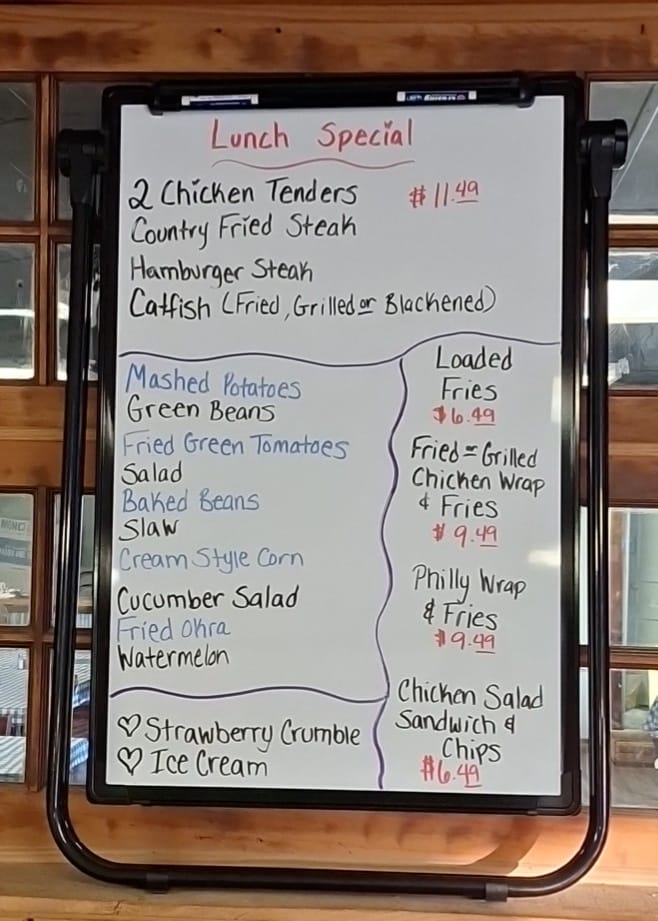 Lunch Special
2 Chicken Tenders $11.49
Country Fried Steak
Hamburger Steak
Catfish (Fried, Grilled or Blackened)
Mashed Potatoes
Green Beans
Fried Green Tomatoes
Salad
Baked Beans
Slaw
Cream Style Corn
Cucumber Salad
Fried Okra
Watermelon
♡ Strawberry Crumble
♡ Ice Cream
Loaded
Fries
$6.49
Fried or Grilled
Chicken Wrap
& Fries
$9.49
Philly Wrap
& Fries
$9.49
Chicken Salad
Sandwich &
Chips
$6.49